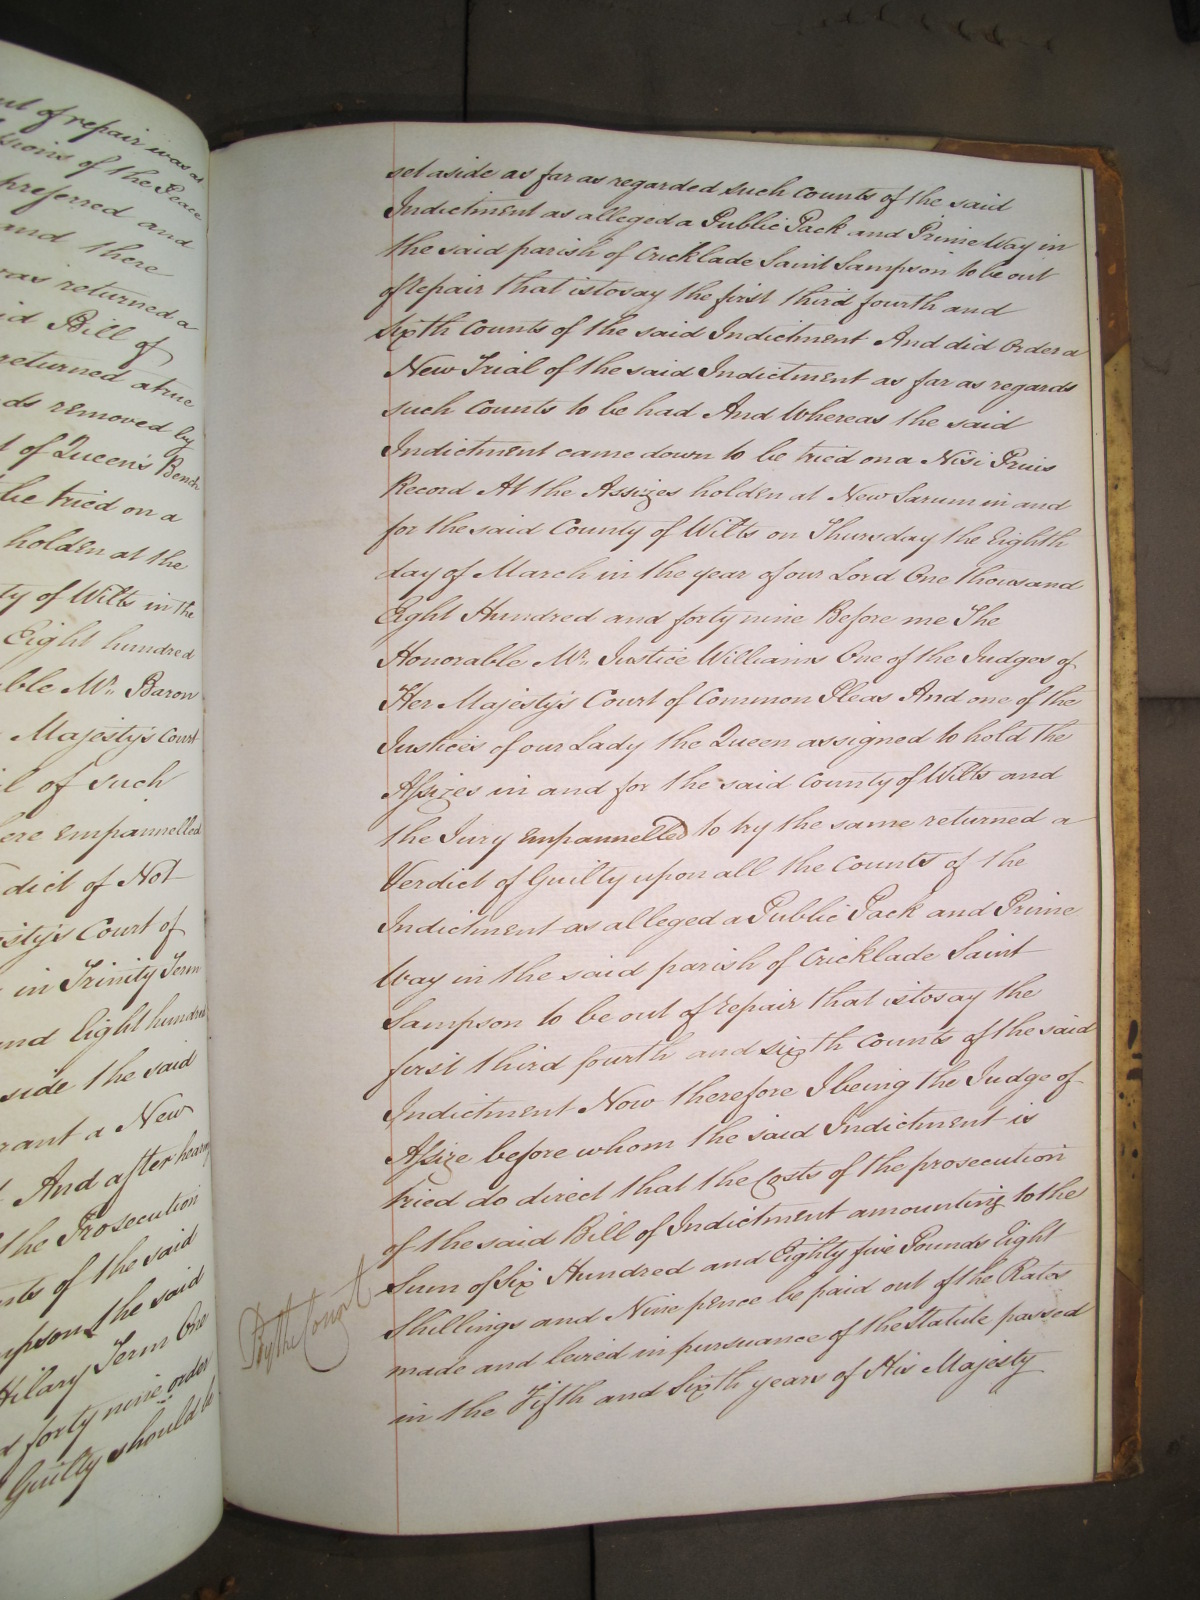 ut of repair was at
ssions of the Peace
preferred and
and there
was returned a
id Bill of
returned a true
ds removed by
t of Queen's Bench
be tried on a
holden at the
ty of Wilts in the
Eight hundred
ble Mr. Baron
Majesty's Court
l of such
ere empannelled
dict of Not
esty's Court of
in Trinity Term
nd Eight hundred
side the said
rant a New
And after hearing
the Prosecution
nts of the said
mpson the said
Hilary Term One
d forty nine order
Guilty should be
set aside as far as regarded such Counts of the said
Indictment as alleged a Public Pack and Prime Way in
the said parish of Cricklade Saint Sampson to be out
of repair that is to say the first third fourth and
sixth Counts of the said Indictment And did Order a
New Trial of the said Indictment as far as regards
such Counts to be had And Whereas the said
Indictment came down to be tried on a Nisi Prius
Record At the Assizes holden at New Sarum in and
for the said County of Wilts on Thursday the Eighth
day of March in the year of our Lord One thousand
Eight Hundred and forty nine Before me The
Honorable Mr. Justice Williams One of the Judges of
Her Majesty's Court of Common Pleas And one of the
Justices of our Lady the Queen assigned to hold the
Assizes in and for the said County of Wilts and
the Jury empannelled to try the same returned a
Verdict of Guilty upon all the Counts of the
Indictment as alleged a Public Pack and Prime
Way in the said parish of Cricklade Saint
Sampson to be out of repair that is to say the
first third fourth and sixth Counts of the said
Indictment Now therefore I being the Judge of
Assize before whom the said Indictment is
tried do direct that the Costs of the prosecution
of the said Bill of Indictment amounting to the
Sum of Six Hundred and Eighty five Pounds Eight
Shillings and Nine pence be paid out of the Rates
made and levied in pursuance of the Statute passed
in the Fifth and Sixth years of His Majesty
By the Court